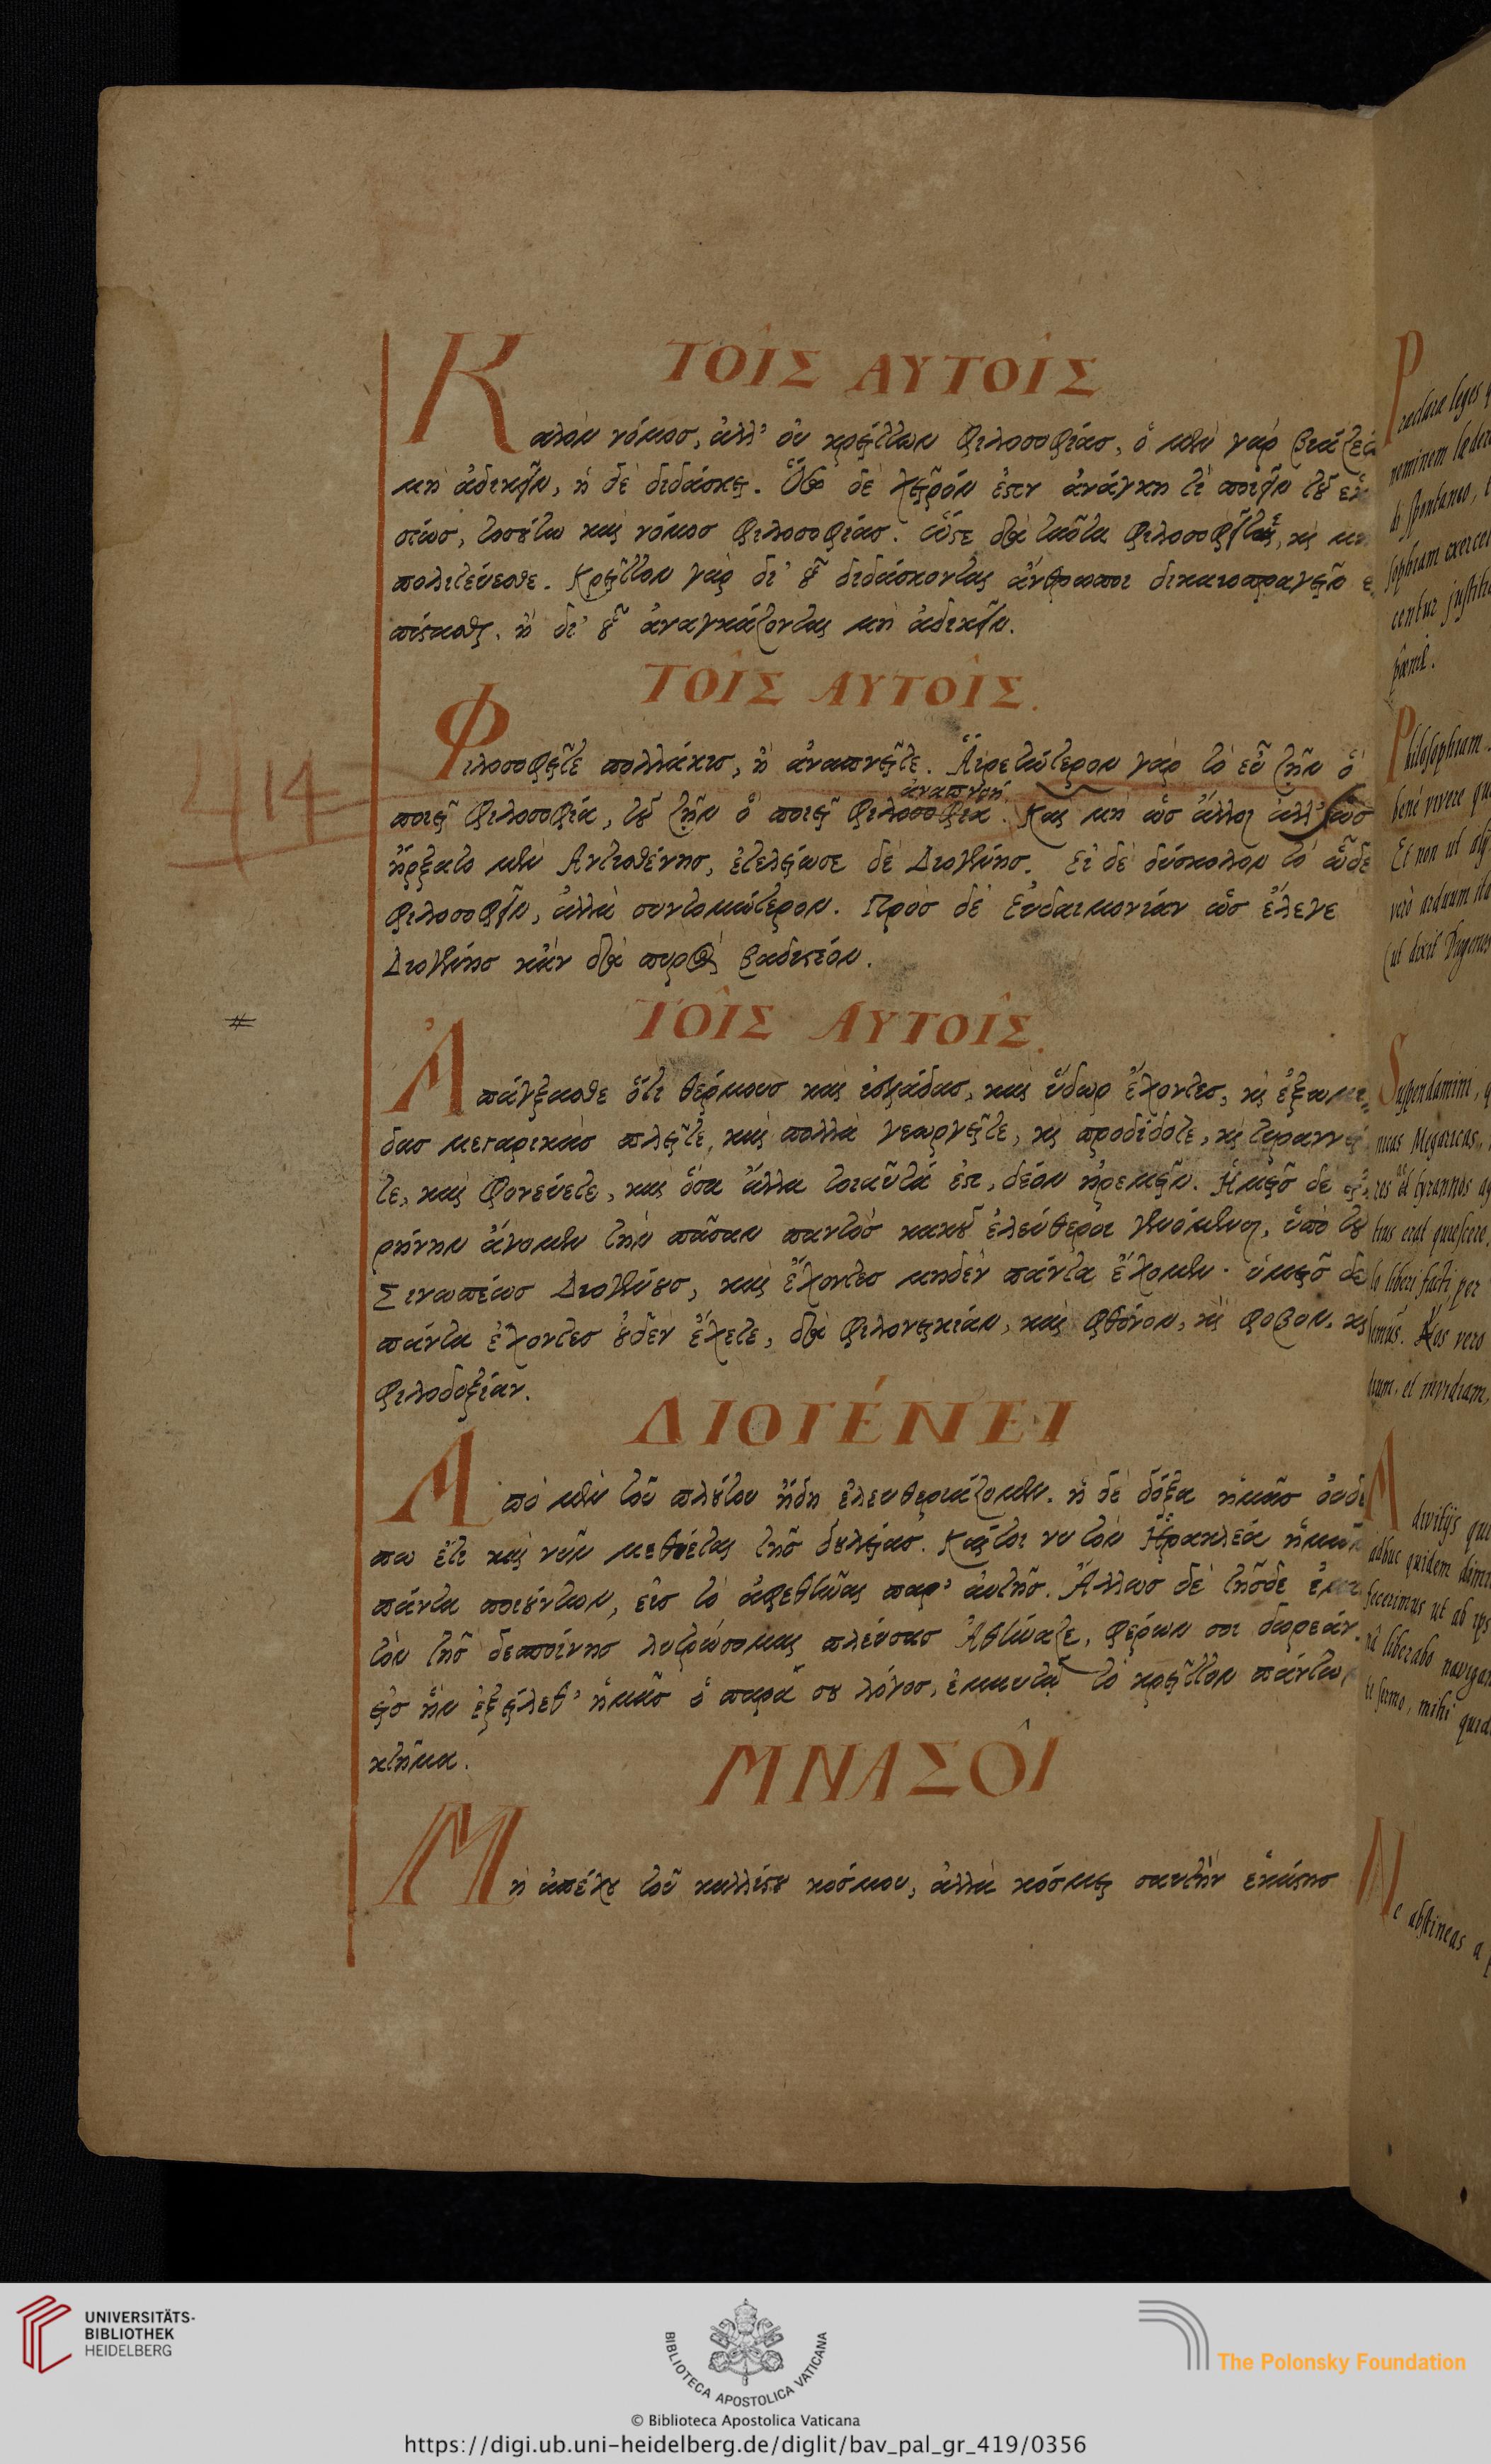 ΤΟΙ͂Σ ΑΥΤΟΙ͂Σ
Καλὸν νόμοσ, ἀλλ' οὐ κρείττων φιλοσοφίασ, ὁ μὲν γάρ βιάζετ
μὴ ἀδικεῖν, ἡ δὲ διδάσκει. Ὅσω δὲ χεῖρόν ἐστιν ἀνάγκη τὶ ποιεῖν τοῦ ἑκ
σίωσ, τοσούτω καὶ νόμοσ φιλοσοφίασ. ὥστε διὰ ταῦτα φιλοσοφεῖτε, καὶ μη
πολιτεύεσθε. Κρεῖττον γὰρ δι' οὗ διδάσκονται ἄνθρωποι δικαιοπραγεῖν ε
πίστασθαι, ἢ δι' οὗ ἀναγκάζονται μὴ ἀδικεῖν.
ΤΟΙ͂Σ ΑΥΤΟΙ͂Σ.
Φιλοσοφεῖτε πολλάκισ, ἢ ἀναπνεῖτε. Αἱρετώτερον γὰρ τὸ εὖ ζῆν ὃ
ἀναπνοή
ποιεῖ φιλοσοφία, τοῦ ζῆν ὃ ποιεῖ φιλοσοφία. Καὶ μὴ ὡσ ἄλλοι ἀλλ' ὡσ
ἤρξατο μὲν Αντισθένησ, ἐτελείωσε δὲ Διογένησ. Εἰ δὲ δύσκολον τό ὧδε
φιλοσοφεῖν, ἀλλὰ συντομώτερον. Πρὸσ δὲ Εὐδαιμονίαν ὡσ ἔλεγε
Διογένησ κἂν διὰ πυρὸς βαδιστέον.
ΤΟΙ͂Σ ΑΥΤΟΙ͂Σ.
Ἀπάγξασθε ὅτι θέρμουσ καὶ ἰσχάδασ, καὶ ὕδωρ ἔχοντεσ, καὶ ἐξωμι
δασ μεγαρικὰσ πλεῖτε, καὶ πολλὰ γεωργεῖτε, καὶ προδίδοτε, καὶ τυραννεῖ
τε, καὶ φονεύετε, καὶ ὅσα ἄλλα τοιαῦτά ἐστι, δέον ἠρεμεῖν. Ἡμεῖσ δὲ εἰ
ρήνην ἄγομεν τὴν πᾶσαν παντὸσ κακοῦ ἐλεύθεροι γενόμενοι, ὑπὸ τοῦ
Σινωπέωσ Διογένουσ, καὶ ἔχοντεσ μηδὲν πάντα ἔχομεν. ὑμεῖσ δε
πάντα ἔχοντεσ οὐδὲν ἔχετε, διὰ φιλονεικίαν, καὶ φθόνον, καὶ φοβον, καὶ
φιλοδοξίαν.
ΔΙΟΓΈΝΕΙ
Απὸ μὲν τοῦ πλούτου ἤδη ἐλευθεριάζομεν. ἡ δὲ δόξα ἡμᾶσ οὐδέ
πω ἔτι καὶ νῦν μεθίεται τῆσ δουλείασ. Καίτοι νὴ τὸν Ἡρακλέα ἡμῶν
πάντα ποιούντων, εἰσ τὸ ἀφεθῆναι παρ' αὐτῆσ. Ἄλλωσ δὲ τῆσδε ἐμαυ
τὸν τῆσ δεσποίνησ λυτρώσομαι πλεύσασ Ἀθήναζε, φέρων σοι δωρεάν.
εἰσ ἣν ἐξείλεθ' ἡμᾶσ ὁ παρά σου λόγοσ, ἐμαυτῷ τὸ κρεῖττον πάντων
κτῆμα.
ΜΝΑΣΟΙ͂
Μὴ ἀπέχου τοῦ καλλίστου κόσμου, ἀλλὰ κόσμει σαυτὴν ἑκάστησ
Praeclara leges
neminem laedere
Philosophiam
bené vivere
Et non ut alij
Suspendamini,
nicas Megaricas,
lemus. Vos vero
adhuc quidem
fecerimus ut ab
liberabo
sermo, mihi
Ne abstineas a
414
UNIVERSITÄTS-
BIBLIOTHEK
HEIDELBERG
BIBLIOTECA APOSTOLICA VATICANA
The Polonsky Foundation
© Biblioteca Apostolica Vaticana
https://digi.ub.uni-heidelberg.de/diglit/bav_pal_gr_419/0356